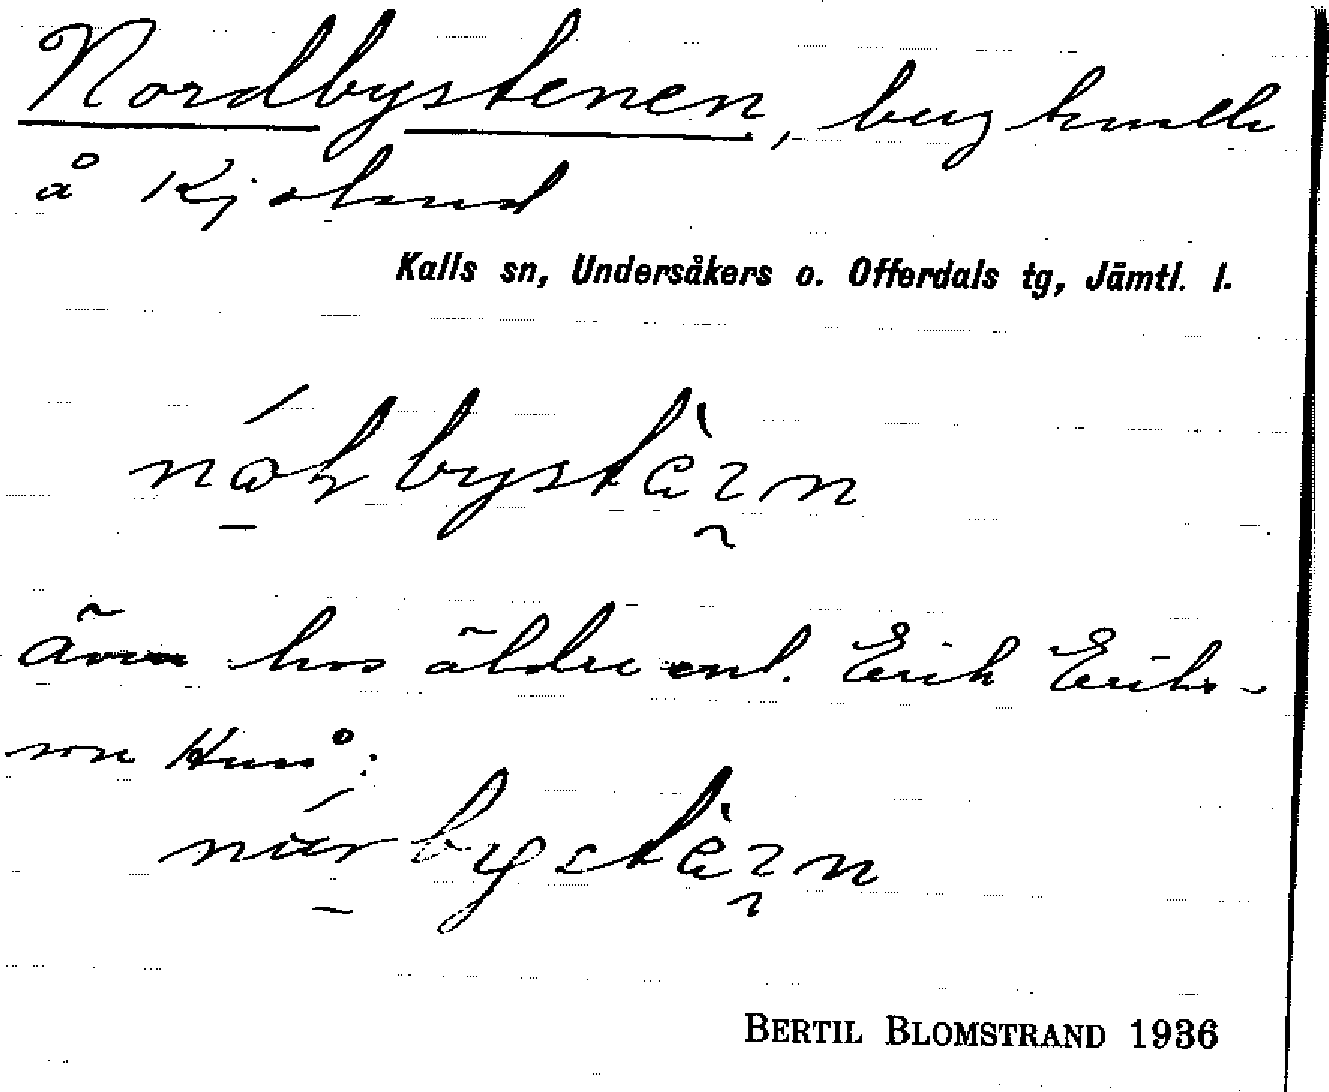 Nordbystenen, berg kulle
å Kjolund
Kalls sn, Undersåkers o. Offerdals tg, Jämtl. l.
även hos äldre enl. Erik Eriks-
son Huså:
BERTIL BLOMSTRAND 1936